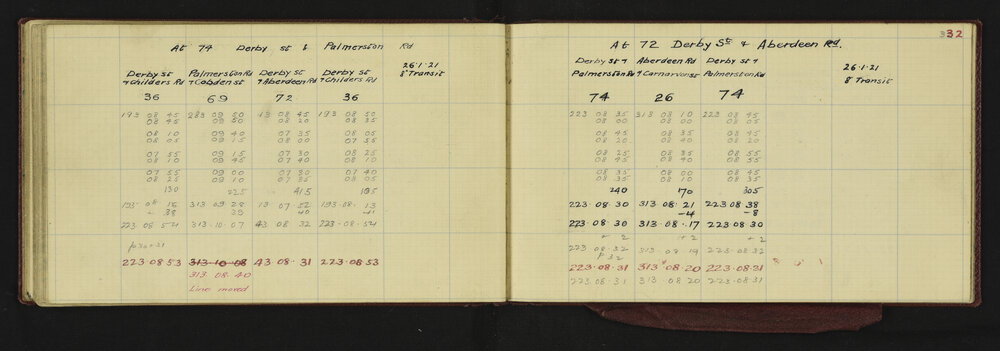 At 74 Derby St & Palmerston Rd
26.1.21
8" Transit
Derby St Palmerston Rd Derby St Derby St
+ Childers Rd + Cobden St + Aberdeen Rd + Childers Rd
36 69 72 36
193 08 45 283 09 50 13 08 45 193 08 50
08 45 09 50 08 20 08 35
08 10 09 40 07 35 08 05
08 05 09 15 08 00 07 55
07 55 09 15 07 30 08 25
08 10 09 45 07 40 08 10
07 55 09 00 07 80 07 40
08 25 09 10 07 35 08 05
130 225 415 105
193 08 16 313 09 28 13 07 52 193.08. 13
- 38 39 40 -41
223 08 54 313.10.07 43 08 32 223.08.54
223.08.53 313.10.08 43.08.31 223.08 53
313 08.40
Line moved
332
At 72 Derby St & Aberdeen Rd.
26.1.21
8" Transit
Derby St + Aberdeen Rd Derby St +
Palmerston Rd + Carnarvon St Palmerston Rd
74 26 74
223 08 35 313 08 10 223 08 45
08 00 08 00 08 00
08 45 08 35 08 45
08 20 08 40 08 20
08 25 08 35 08 55
08 40 08 40 08 55
08 35 08 00 08 40
08 35 08 10 08 35
240 170 305
223.08.30 313 08.21 223 08 38
-4 -8
223.08.30 313.08.17 223 08 30
+ 2 +2 + 2
223 08 32 313 08 19 223.08 32
P 32
223.08.31 313.08.20 223.08.31
223 08 31 313 08 20 223.08 31